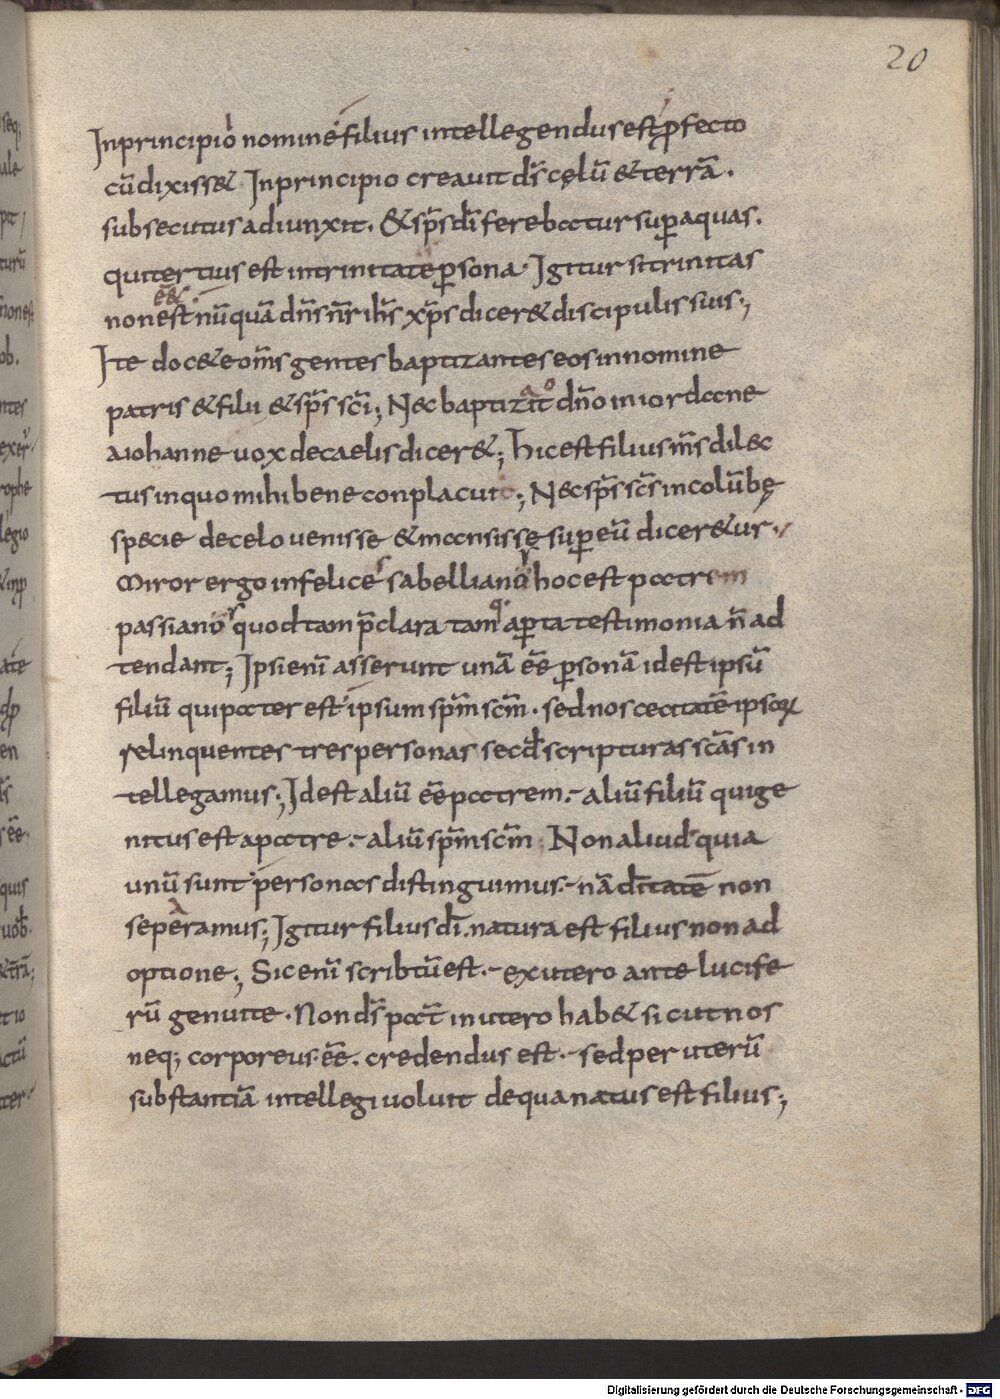 20
Inprincipio nomine filius intellegendus est profecto
cū dixiss& Inprincipio creauit ds̄ cęlū & terrā.
subsecutus adiunxit. & sps̄ dī ferebatur sup aquas.
qui tertius est in trinitate psona. Igitur si trinitas
non est nūquā dn̄s nr̄ ihs̄ xps̄ dicer& discipulis suis;
ēē&
Ite doc&e om̄s gentes baptizantes eos in nomine
patris & filii & sps̄ sc̄i; Nec baptizato dn̄o in iordane
a iohanne uox de caelis dicer&; hic est filius ms̄ dilec
tus in quo mihi bene conplacuit; Nec sps̄ sc̄s in colūbę
specie de celo uenisse & mansissę sup eū dicer&ur.
Miror ergo infelices sabellianos hoc est patrem
passianos quod tam p̄clara tamq; apta testimonia n̄ ad
tendant; Ipsi enī asserunt unā ēē psonā id est ipsū
filiū qui pater est ipsum spm̄ scm̄. sed nos cecitatē ipsoꝝ
relinquentes tres personas secd̄ scripturas sc̄as in
tellegamus; Id est aliū ēē patrem. aliū filiū qui ge
nitus est a patre. aliū spm̄ scm̄ Non aliud quia
unū sunt personas distinguimus. nā dītatē non
seperamus; Igitur filius dī. natura est filius non ad
optione; Sic enī scribtū est. ex utero ante lucife
rū genui te. Non ds̄ pat̄ in utero hab& sicut nos
neq; corporeus ēē. credendus est. sed per uterū
substantiā intellegi uoluit de qua natus est filius;
Digitalisierung gefördert durch die Deutsche Forschungsgemeinschaft - DFG